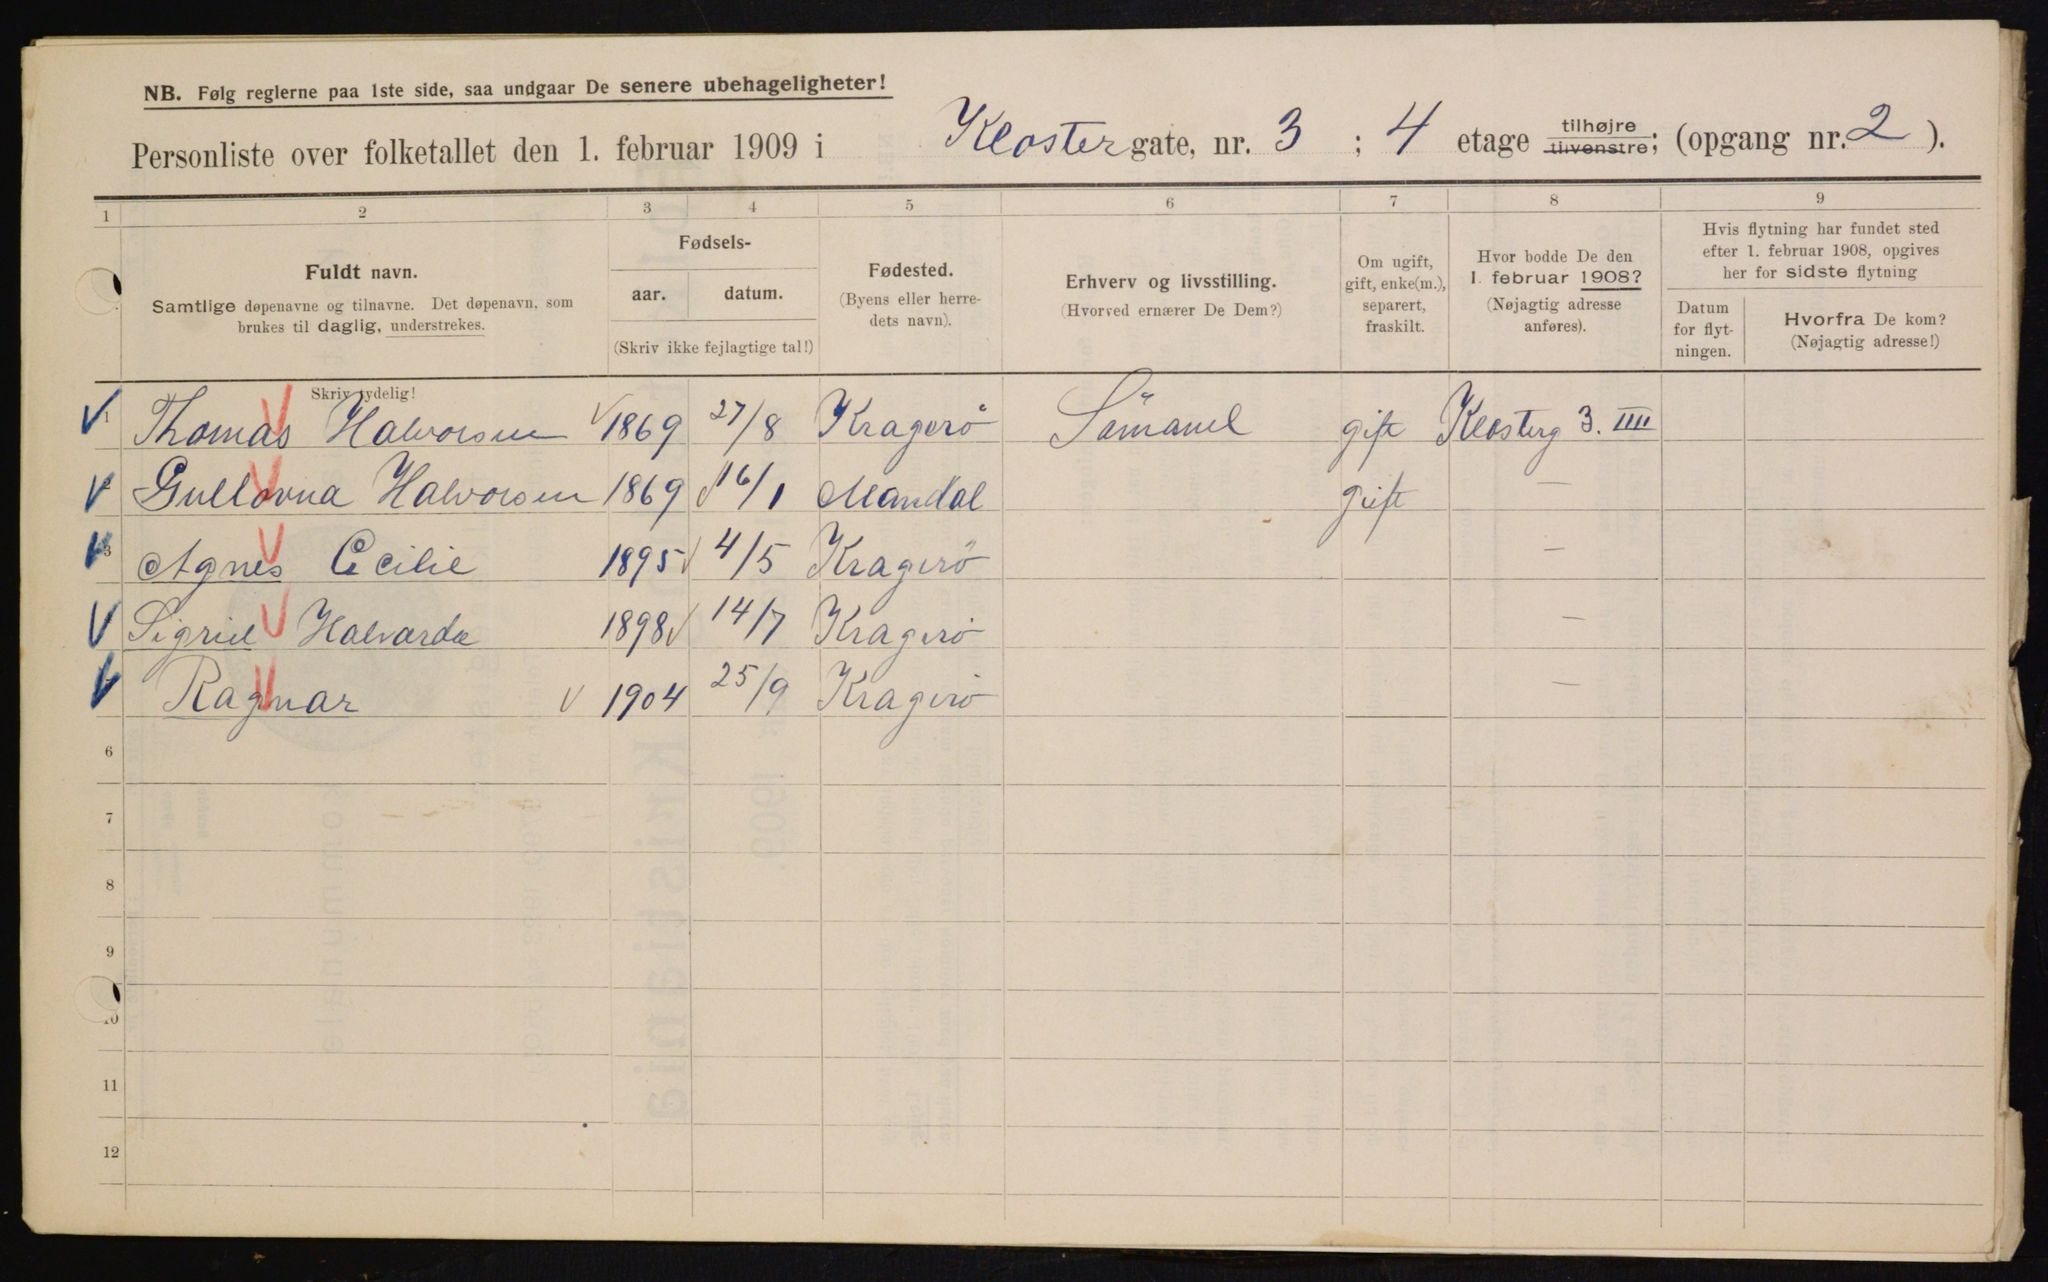 NB. Følg reglerne paa 1ste side, saa undgaar De senere ubehageligheter!
Personliste over folketallet den 1. februar 1909 i Klostergate, nr. 3 ; 4 etage tilhøjre tilvenstre; (opgang nr. 2 ).
1 2 3 4 5 6 7 8 9
Fuldt navn.
Samtlige døpenavne og tilnavne. Det døpenavn, som
brukes til daglig, understrekes.
Skriv tydelig!
Fødsels-
aar. datum.
(Skriv ikke fejlagtige tal!)
Fødested.
(Byens eller herre-
dets navn).
Erhverv og livsstilling.
(Hvorved ernærer De Dem?)
Om ugift,
gift, enke(m.),
separert,
fraskilt.
Hvor bodde De den
1. februar 1908?
(Nøjagtig adresse
anføres).
Hvis flytning har fundet sted
efter 1. februar 1908, opgives
her for sidste flytning
Datum
for flyt-
ningen.
Hvorfra De kom?
(Nøjagtig adresse!)
1 Thomas Halvorsen 1869 27/8 Kragerö Sömand gift Klosterg 3. IIII
Gullovna Halvorsen 1869 16/1 Mandal gift —
3 Agnes Cecilie 1895 4/5 Kragerö —
Sigrid Halvarda 1898 14/7 Kragerö —
Ragnar 1904 25/9 Kragerö —
6
7
8
9
10
11
12